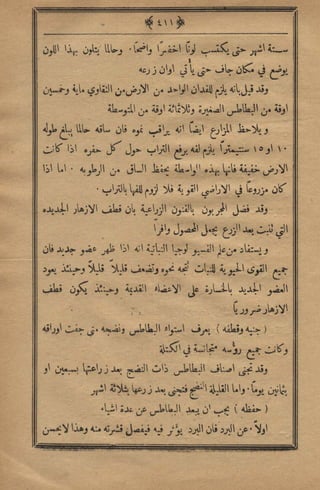 ﴿ ٤١١ ﴾
ستة اشهر حتى يكتسب لونًا اخضرًا واضحًا. وحالما يتلون بهذا اللون
يوضع في مكان جاف حتى يأتي اوان زرعه
وقد قيل بانه يلزم للفدان الواحد من الارض من التقاوي ماية وخمسين
اوقة من البطاطس الصغيرة وثلاثمائة اوقة من المتوسطة
ويلاحظ المزارع ايضًا انه يراقب نموه فان ساقه حالما يبلغ طوله
١٠ او ١٥ سنتيمترًا يلزم لفه برفع التراب حول كل حفره اذا كانت
الارض خفيفة فانها بهذه الواسطة يحفظ الساق من الرطوبه. اما اذا
كان مزروعًا في الاراضي القوية فلا لزوم للفها بالتراب.
وقد فضل المجربون بالفنون الزراعية بان قطف الازهار الجديده
التي تنبت بعد الزرع يجعل المحصول وافرًا
ويستفاد من علم الفسيولوجيا النباتية انه اذا ظهر عضو جديد فان
جميع القوى الحيوية للنبات تتجه نحوه وتضعف قليلاً قليلاً وحينئذ يعود
العضو الجديد بالخسارة على الاعضاء القديمة وحينئذ يكون قطف
الازهار ضروريًا
( جنيه وقطفه ) يعرف استواء البطاطس ونضجه متى جفت اوراقه
وكانت جميع رؤسه متجانسة في الكتلة
وقد تجنى اصناف البطاطس ذات النضج بعد زراعتها بسبعين او
بثمانين يومًا. واما القليلة النضج فتجنى بعد زرعها بثلاثة اشهر
( حفظه ) يجب ان يبعد البطاطس عن عدة اشياء
اولاً. عن البرد فان البرد يؤثر فيه فيفصل قشرته منه وهذا لا يحسن